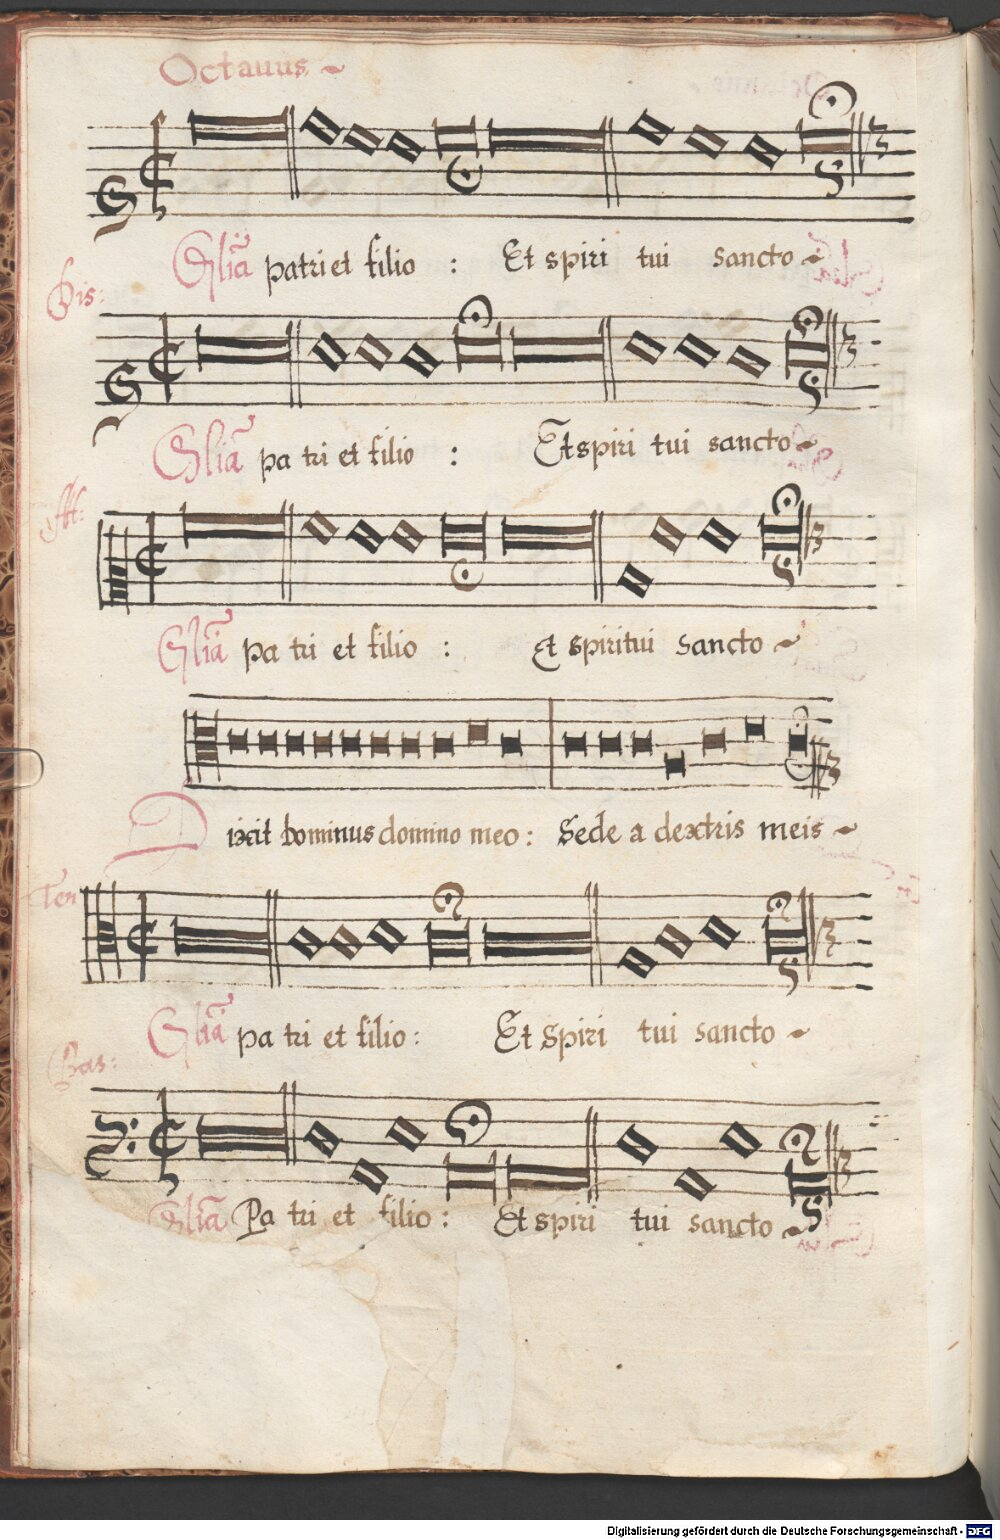 Octauus ~
Glia patri et filio : Et spiri tui sancto ~
Dis:
Glia pa tri et filio : Et spiri tui sancto ~
Alt:
Glia pa tri et filio : Et spiritui sancto ~
Dixit dominus domino meo : Sede a dextris meis ~
Ten
Glia pa tri et filio : Et spiri tui sancto ~
Bas:
Glia Pa tri et filio : Et spiri tui sancto ~
Digitalisierung gefördert durch die Deutsche Forschungsgemeinschaft - DFG